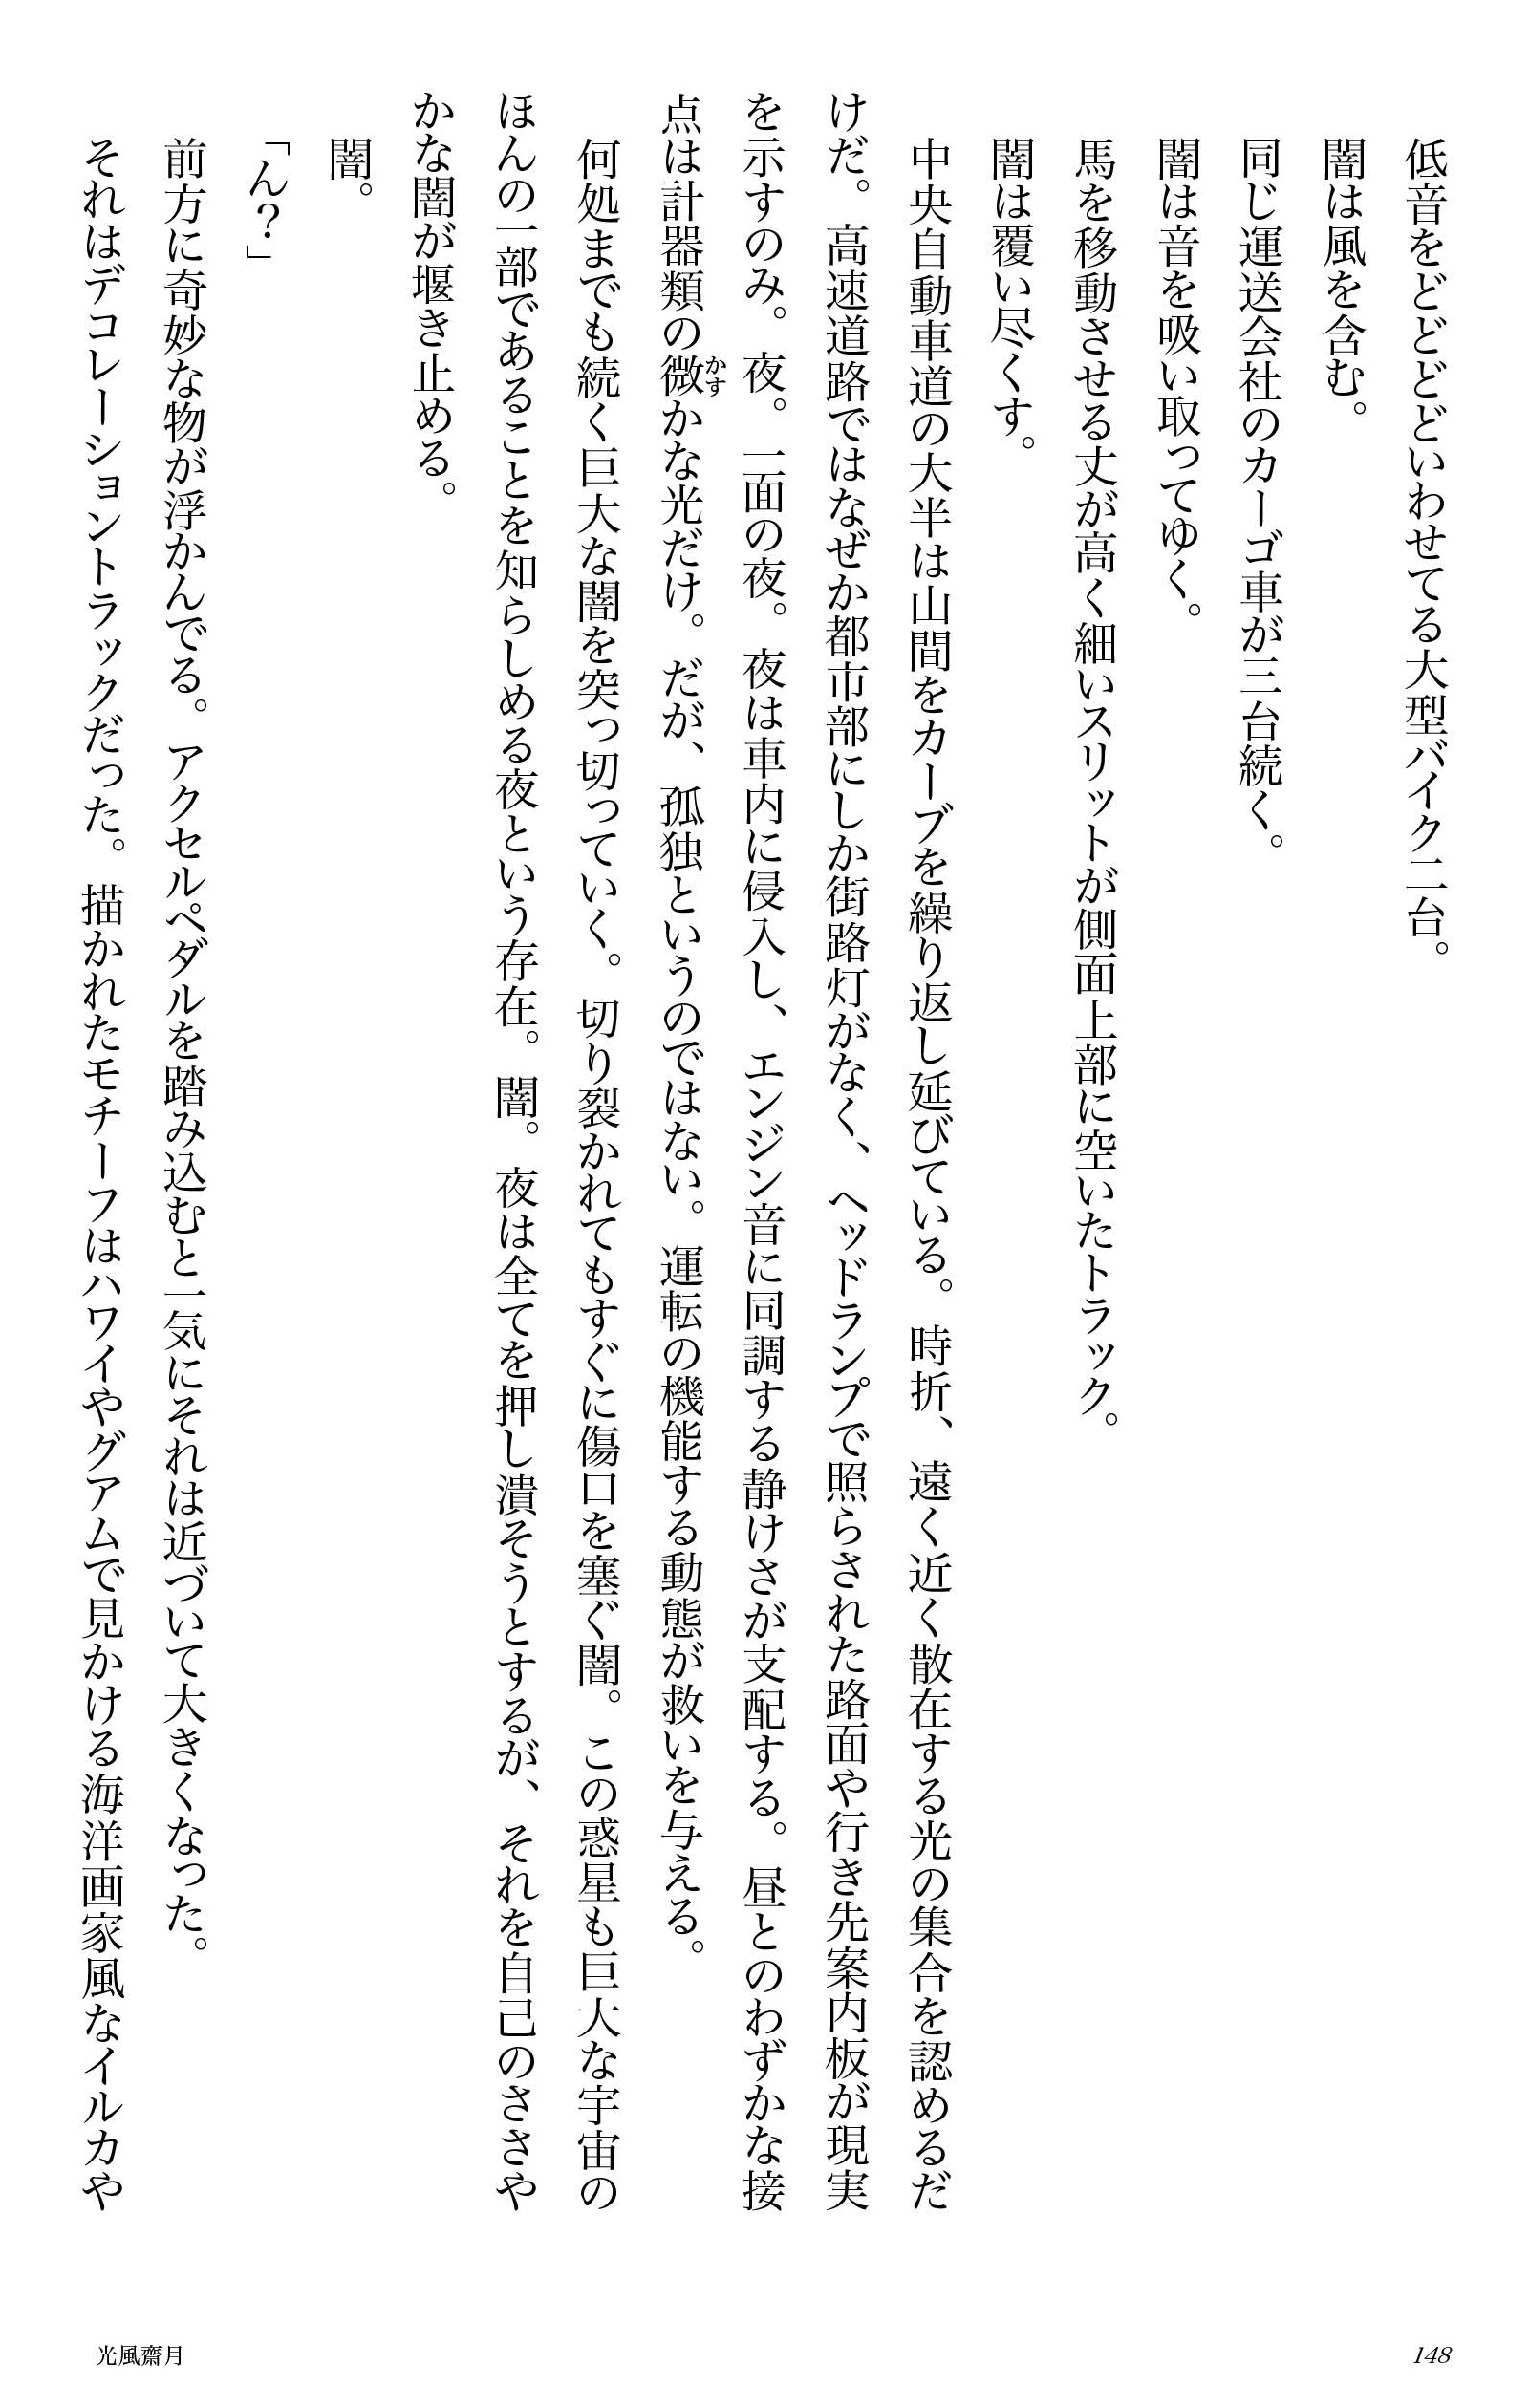 低音をどどどどいわせてる大型バイク二台。
闇は風を含む。
同じ運送会社のカーゴ車が三台続く。
闇は音を吸い取ってゆく。
馬を移動させる丈が高く細いスリットが側面上部に空いたトラック。
闇は覆い尽くす。
中央自動車道の大半は山間をカーブを繰り返し延びている。時折、遠く近く散在する光の集合を認めるだ
けだ。高速道路ではなぜか都市部にしか街路灯がなく、ヘッドランプで照らされた路面や行き先案内板が現実
を示すのみ。夜。一面の夜。夜は車内に侵入し、エンジン音に同調する静けさが支配する。昼とのわずかな接
点は計器類の微かすかな光だけ。だが、孤独というのではない。運転の機能する動態が救いを与える。
何処までも続く巨大な闇を突っ切っていく。切り裂かれてもすぐに傷口を塞ぐ闇。この惑星も巨大な宇宙の
ほんの一部であることを知らしめる夜という存在。闇。夜は全てを押し潰そうとするが、それを自己のささや
かな闇が堰き止める。
闇。
「ん？」
前方に奇妙な物が浮かんでる。アクセルペダルを踏み込むと一気にそれは近づいて大きくなった。
それはデコレーショントラックだった。描かれたモチーフはハワイやグアムで見かける海洋画家風なイルカや
光風齋月
148